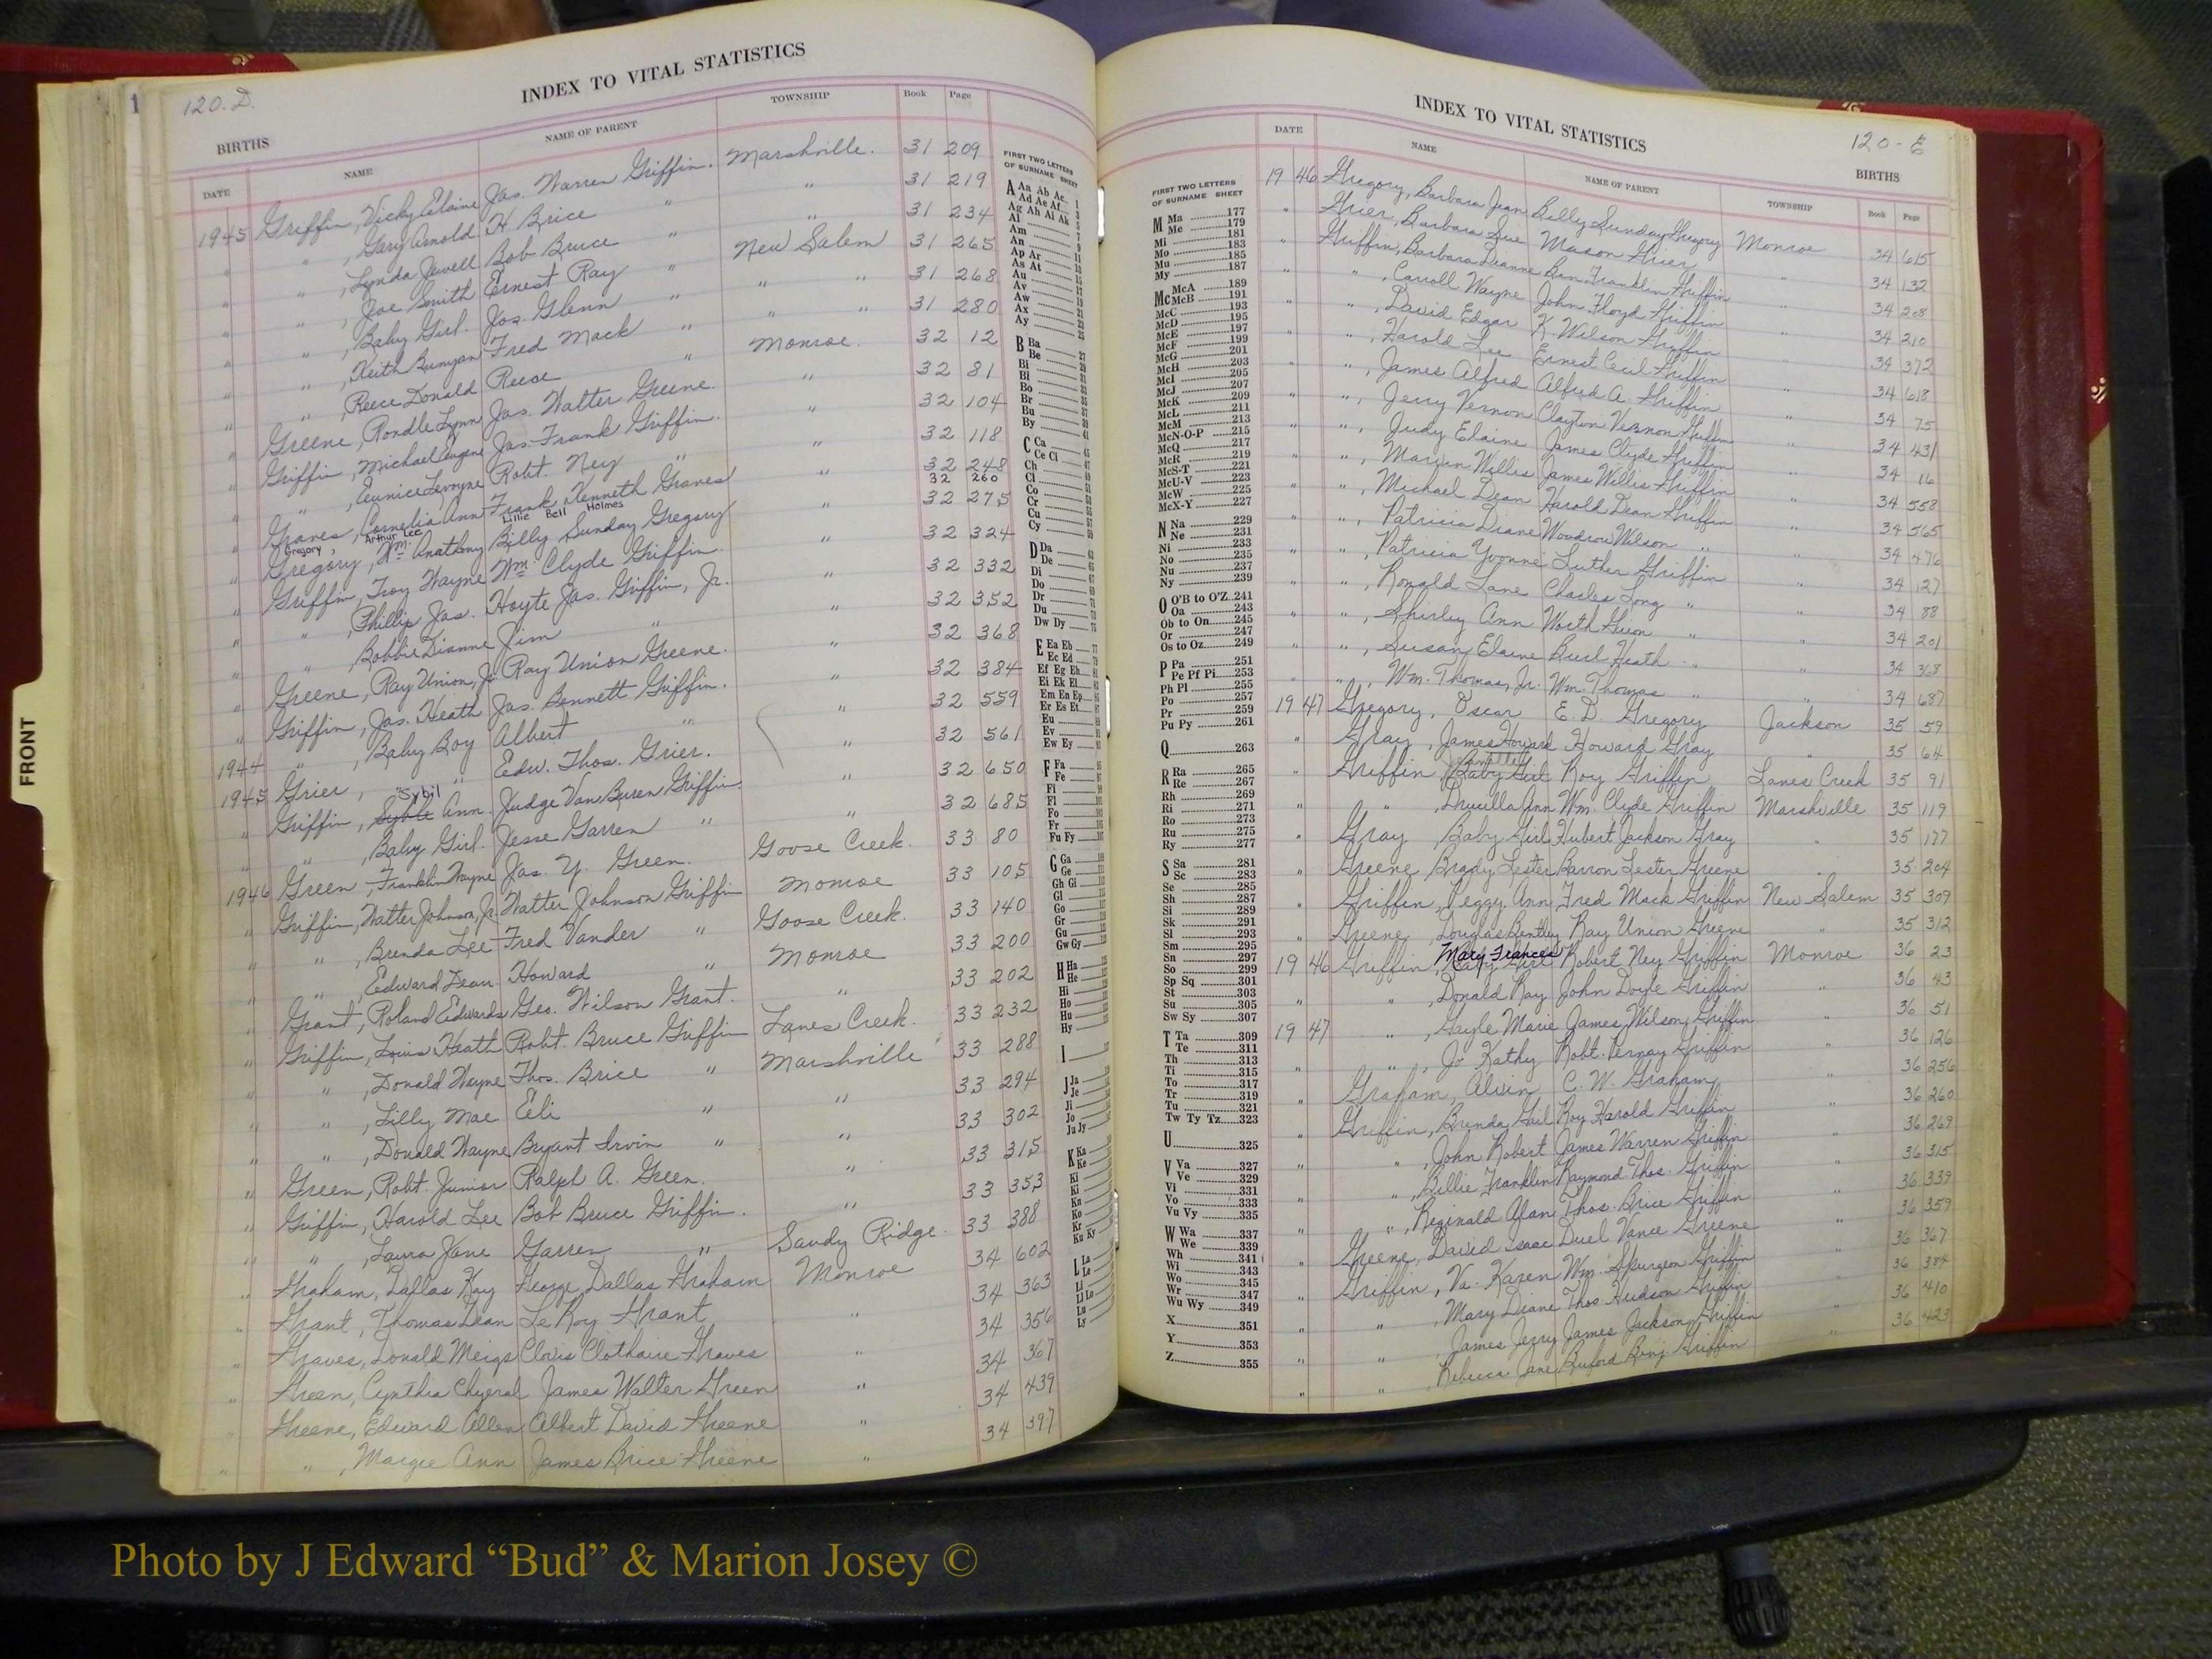 120-D.
INDEX TO VITAL STATISTICS
BIRTHS
DATE NAME NAME OF PARENT TOWNSHIP Book Page
1945 Griffin, Vicky Elaine Jas. Warren Griffin. Marshville. 31 209
" " , Gary Arnold H Brice " " 31 219
" " , Lynda Jewell Bob Bruce " " 31 234
" " , Joe Smith Ernest Ray " New Salem 31 265
" " , Baby Girl. Jos. Glenn " " " 31 268
" " , Keith Bunyan Fred Mack " " " 31 280
" " , Reece Donald Reece " Monroe. 32 12
" Greene, Rondle Lynn Jas. Walter Greene. " 32 81
" Griffin, Michael Eugene Jas. Frank Griffin. " 32 104
" " , Eunice Robt. Ney " " 32 118
" Graves, Cornelia Ann Frank Kenneth Graves " 32 248
Gregory, Arthur Lee Lillie Bell Holmes 32 260
" Gregory, Wm. Anathony Billy Sunday Gregory " 32 275
" Griffin, Troy Wayne Wm. Clyde Griffin. " 32 324
" " , Phillip Jas. Hoyte Jas. Griffin, Jr. " 32 332
" " Bobbie Dianne Jim " " 32 352
" Greene, Ray Union, Jr. Ray Union Greene. " 32 368
" Griffin, Jas. Heath Jas. Bennett Griffin. " 32 384
1944 " , Baby Boy Albert " " 32 559
1945 Grier, " Edw. Thos. Grier. " 32 561
" Griffin, "Sybil" Ann. Judge Van Buren Griffin. " 32 650
" " , Baby Girl. Jesse Garren " " 32 685
1946 Green, Franklin Wayne Jas. Y. Green. Goose Creek. 33 80
" Griffin, Walter Johnson, Jr. Walter Johnson Griffin Monroe 33 105
" " , Brenda Lee Fred Vander " Goose Creek. 33 140
" " , Edward Dean Howard " Monroe 33 200
" Grant, Roland Edwards Geo. Wilson Grant. " 33 202
" Griffin, Louis Heath Robt. Bruce Griffin Lanes Creek. 33 232
" " , Donald Wayne Thos. Brice " Marshville 33 288
" " , Lilly Mae Eli " " 33 294
" " , Donald Wayne Bryant Irvin " " 33 302
" Green, Robt. Junior Ralph A. Green. " 33 315
" Griffin, Harold Lee Bob Bruce Griffin. " 33 353
" " , Laura Jane Garren " Sandy Ridge. 33 388
" Graham, Dallas Ray George Dallas Graham Monroe 34 602
" Grant, Thomas Dean Le Roy Grant " 34 363
" Graves, Donald Meigs Clovis Clothaire Graves " 34 356
" Green, Cynthia Cheryral James Walter Green " 34 367
" Greene, Edward Allen Albert David Greene " 34 439
" " , Margie Ann James Brice Greene " 34 397
FRONT
FIRST TWO LETTERS
OF SURNAME SHEET
A Aa Ab Ac
Ad Ae Af
Ag Ah Ai Ak
Al
Am
An
Ap Ar
As At
Au
Av
Aw
Ax
Ay
B Ba
Be
Bi
Bl
Bo
Br
Bu
By
C Ca
Ce Ci
Ch
Cl
Co
Cr
Cu
Cy
D Da
De
Di
Do
Dr
Du
Dw Dy
E Ea Eb
Ec Ed
Ef Eg Eh
Ei Ek El
Em En Ep
Er Es Et
Eu
Ev
Ew Ey
F Fa
Fe
Fi
Fl
Fo
Fr
Fu Fy
G Ga
Ge
Gh Gi
Gl
Go
Gr
Gu
Gw Gy
H Ha
He
Hi
Ho
Hu
Hy
I
J Ja
Je
Ji
Jo
Ju Jy
K Ka
Ke
Ki
Kn
Ko
Kr
Ku Ky
L La
Le
Li
Ll Lo
Lu
Ly
INDEX TO VITAL STATISTICS
120-E
BIRTHS
DATE NAME NAME OF PARENT TOWNSHIP Book Page
1946 Gregory, Barbara Jean Billy Sunday Gregory Monroe 34 615
" Grier, Barbara Sue Mason Grier " 34 132
" Griffin, Barbara Deanne Ben Franklin Griffin " 34 208
" " , Carroll Wayne John Floyd Griffin " 34 210
" " , David Edgar K. Wilson Griffin " 34 372
" " , Harold Lee Ernest Cecil Griffin " 34 618
" " , James Alfred Alfred A. Griffin " 34 75
" " , Jerry Vernon Clayton Vernon Griffin " 34 431
" " , Judy Elaine James Clyde Griffin " 34 16
" " , Marvin Willis James Willis Griffin " 34 558
" " , Michael Dean Harold Dean Griffin " 34 565
" " , Patricia Diane Woodrow Wilson " " 34 476
" " , Patricia Yvonne Luther Griffin " 34 127
" " , Ronald Lane Charles Long " " 34 88
" " , Shirley Ann Worth " " 34 201
" " , Susan Elaine Burl Heath " " 34 368
" " , Wm. Thomas, Jr. Wm. Thomas " " 34 687
1947 Gregory, Oscar E. D. Gregory Jackson 35 59
" Gray, James Howard Howard Gray " 35 64
" Griffin, Baby Girl Roy Griffin Lanes Creek 35 91
" " , Drucilla Ann Wm. Clyde Griffin Marshville 35 119
" Gray, Baby Girl Hubert Jackson Gray " 35 177
" Greene, Brady Lester Barron Lester Greene " 35 204
" Griffin, Peggy Ann Fred Mack Griffin New Salem 35 309
" Greene, Douglas Bentley Ray Union Greene " 35 312
1946 Griffin, Mary Frances Robert Ney Griffin Monroe 36 23
" " , Donald Ray John Doyle Griffin " 36 43
1947 " , Gayle Marie James Wilson Griffin " 36 51
" " , Jo Kathy Robt. Vernay Griffin " 36 126
" Graham, Alvin C. W. Graham " 36 256
" Griffin, Brenda Gail Roy Harold Griffin " 36 260
" " , John Robert James Warren Griffin " 36 269
" " , Billie Franklin Raymond Thos. Griffin " 36 315
" " , Reginald Alan Thos. Brice Griffin " 36 339
" Greene, David Isaac Duel Vance Greene " 36 359
" Griffin, Va. Karen Wm. Spurgeon Griffin " 36 367
" " , Mary Diane Thos. Hudson Griffin " 36 384
" " , James Jerry James Jackson Griffin " 36 410
" " , Rebecca Jane Buford Benj. Griffin " 36 423
FIRST TWO LETTERS
OF SURNAME SHEET
M Ma 177
Me 179
Mi 181
Mo 183
Mu 185
My 187
Mc McA 189
McB 191
McC 193
McD 195
McE 197
McF 199
McG 201
McH 203
McI 205
McJ 207
McK 209
McL 211
McM 213
McN-O-P 215
McQ 217
McR 219
McS-T 221
McU-V 223
McW 225
McX-Y 227
N Na 229
Ne 231
Ni 233
No 235
Nu 237
Ny 239
O O'B to O'Z 241
Oa 243
Ob to On 245
Or 247
Os to Oz 249
P Pa 251
Pe Pf Pi 253
Ph Pl 255
Po 257
Pr 259
Pu Py 261
Q 263
R Ra 265
Re 267
Rh 269
Ri 271
Ro 273
Ru 275
Ry 277
S Sa 281
Sc 283
Se 285
Sh 287
Si 289
Sk 291
Sl 293
Sm 295
Sn 297
So 299
Sp Sq 301
St 303
Su 305
Sw Sy 307
T Ta 309
Te 311
Th 313
Ti 315
To 317
Tr 319
Tu 321
Tw Ty Tz 323
U 325
V Va 327
Ve 329
Vi 331
Vo 333
Vu Vy 335
W Wa 337
We 339
Wh 341
Wi 343
Wo 345
Wr 347
Wu Wy 349
X 351
Y 353
Z 355
Photo by J Edward “Bud” & Marion Josey ©